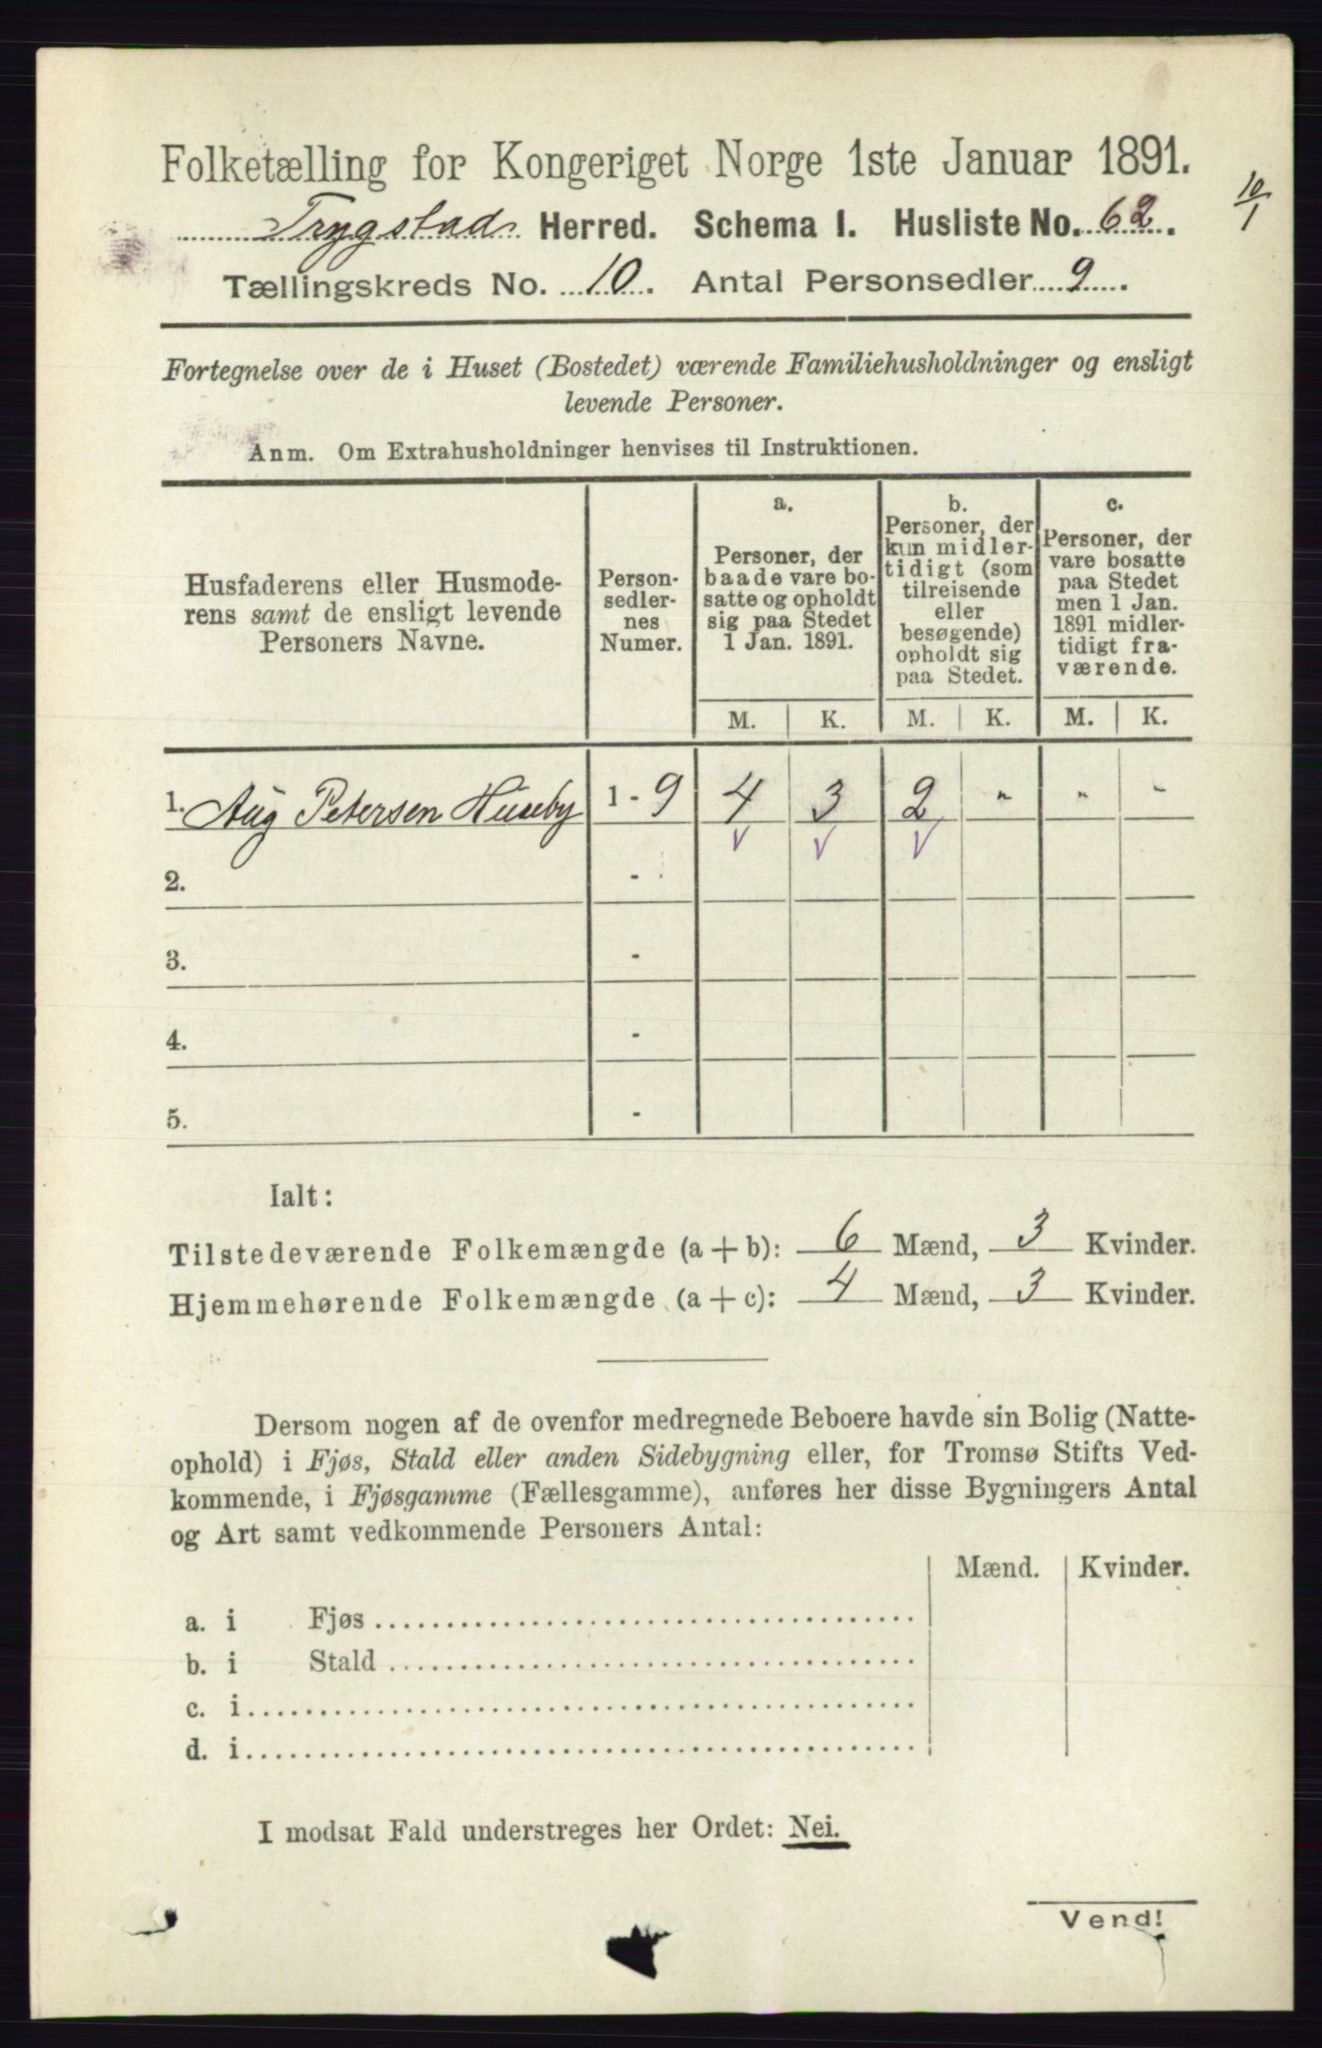 Folketælling for Kongeriget Norge 1ste Januar 1891.
10/1
Trygstad Herred. Schema I. Husliste No. 62.
Tællingskreds No. 10. Antal Personsedler 9.
Fortegnelse over de i Huset (Bostedet) værende Familiehusholdninger og ensligt
levende Personer.
Anm. Om Extrahusholdninger henvises til Instruktionen.
Husfaderens eller Husmode-
rens samt de ensligt levende
Personers Navne.
Person-
sedler-
nes
Numer.
a.
Personer, der
baade vare bo-
satte og opholdt
sig paa Stedet
1 Jan. 1891.
b.
Personer, der
kun midler-
tidigt (som
tilreisende
eller
besøgende)
opholdt sig
paa Stedet.
c.
Personer, der
vare bosatte
paa Stedet
men 1 Jan.
1891 midler-
tidigt fra-
værende.
M. K. M. K. M. K.
1. Aug Petersen Huseby 1 - 9 4 3 2 " " "
2. -
3. -
4. -
5. -
Ialt:
Tilstedeværende Folkemængde (a + b): 6 Mænd, 3 Kvinder.
Hjemmehørende Folkemængde (a + c): 4 Mænd, 3 Kvinder.
Dersom nogen af de ovenfor medregnede Beboere havde sin Bolig (Natte-
ophold) i Fjøs, Stald eller anden Sidebygning eller, for Tromsø Stifts Ved-
kommende, i Fjøsgamme (Fællesgamme), anføres her disse Bygningers Antal
og Art samt vedkommende Personers Antal:
Mænd. Kvinder.
a. i Fjøs
b. i Stald
c. i
d. i
I modsat Fald understreges her Ordet: Nei.
Vend!